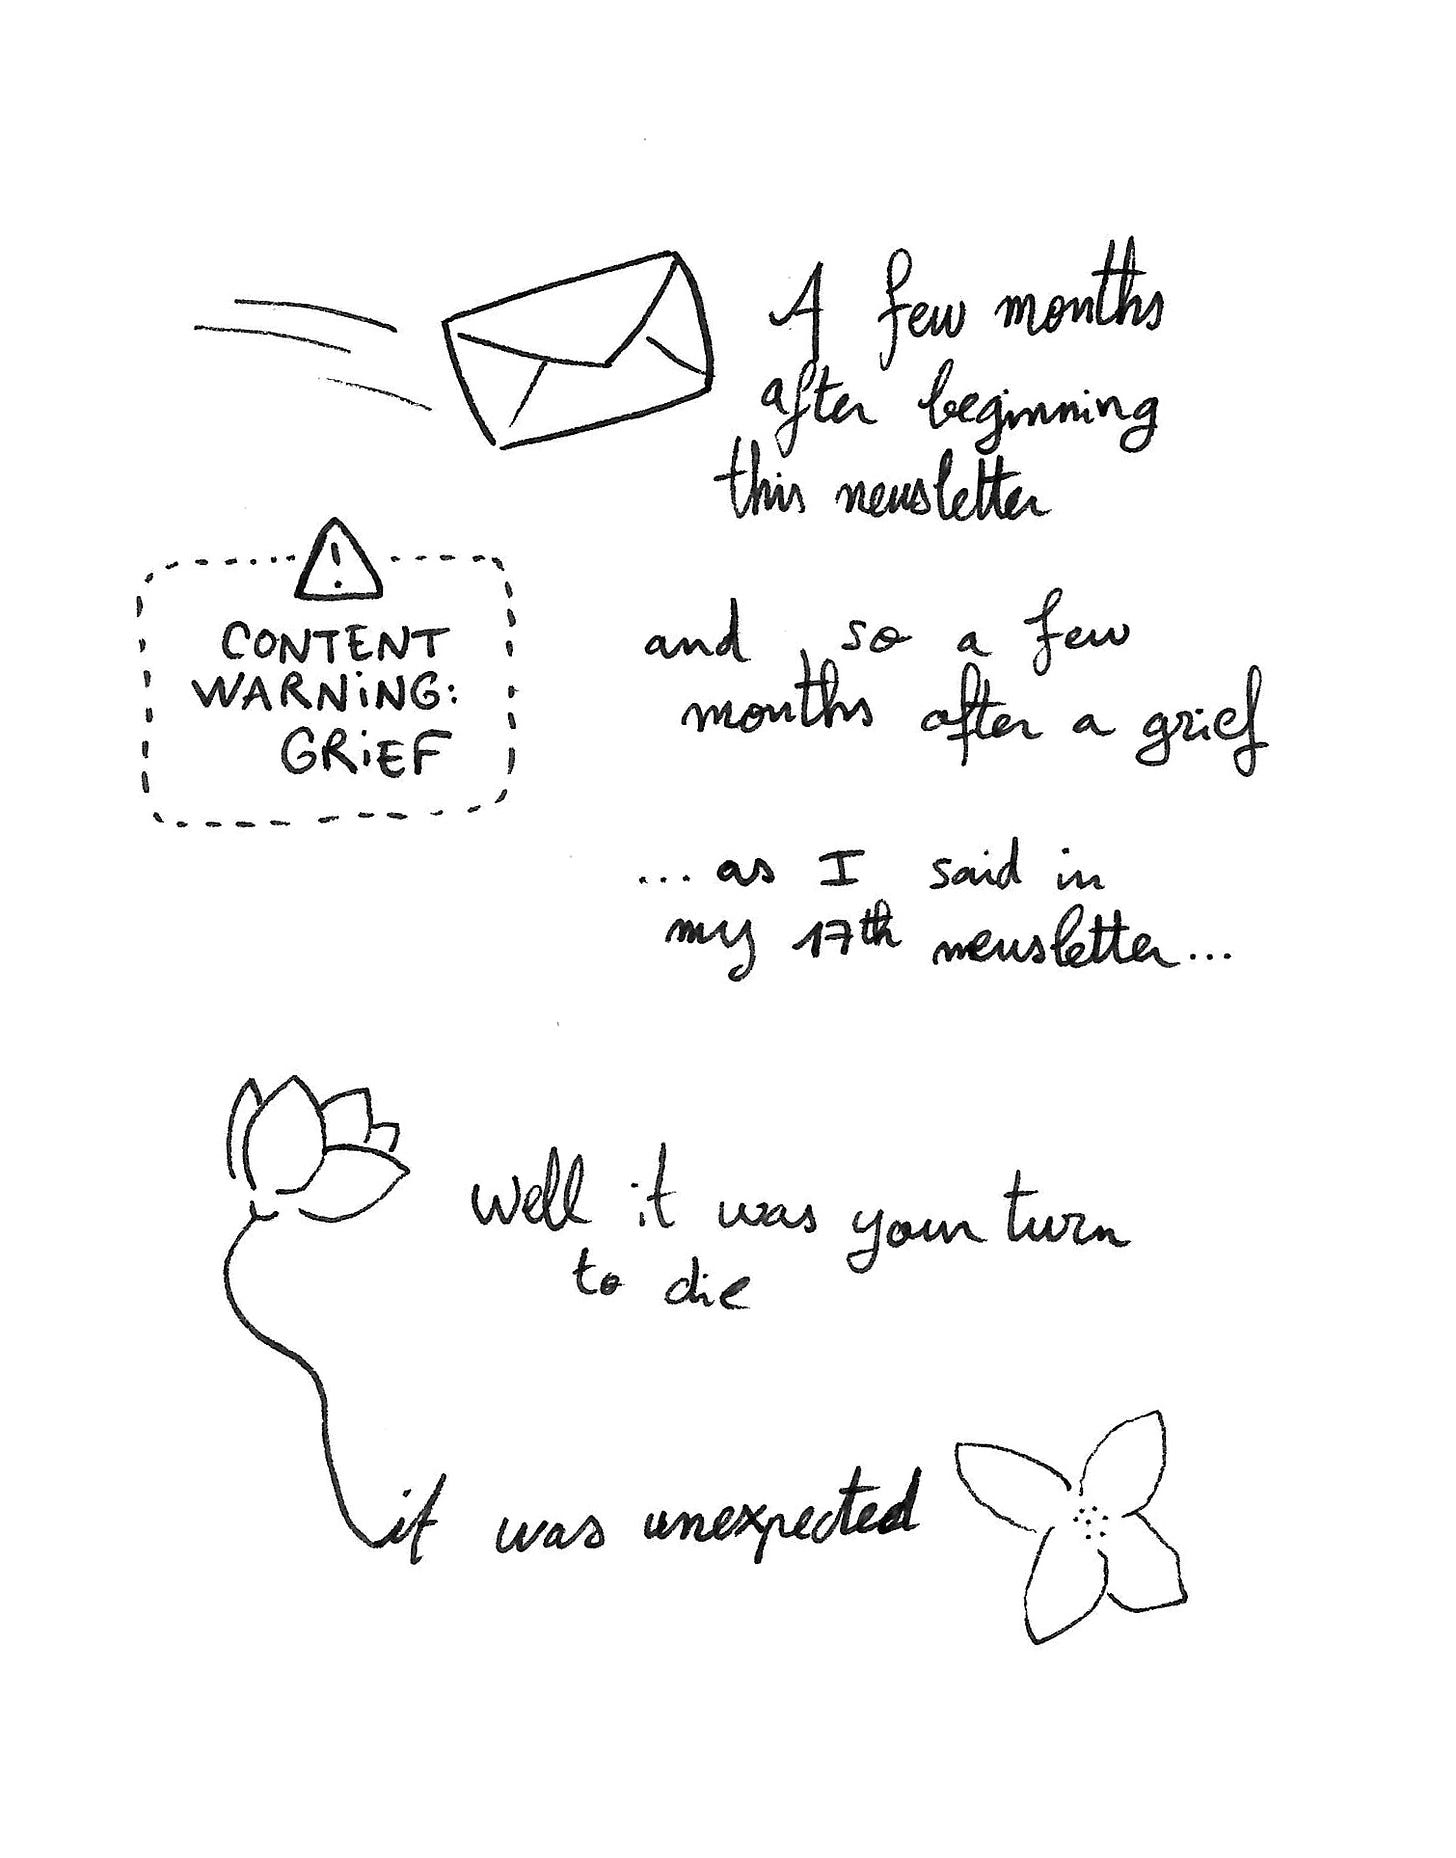 A few months
after beginning
this newsletter
CONTENT
WARNING:
GRIEF
and so a few
months after a grief
... as I said in
my 17th newsletter...
Well it was your turn
to die
it was unexpected